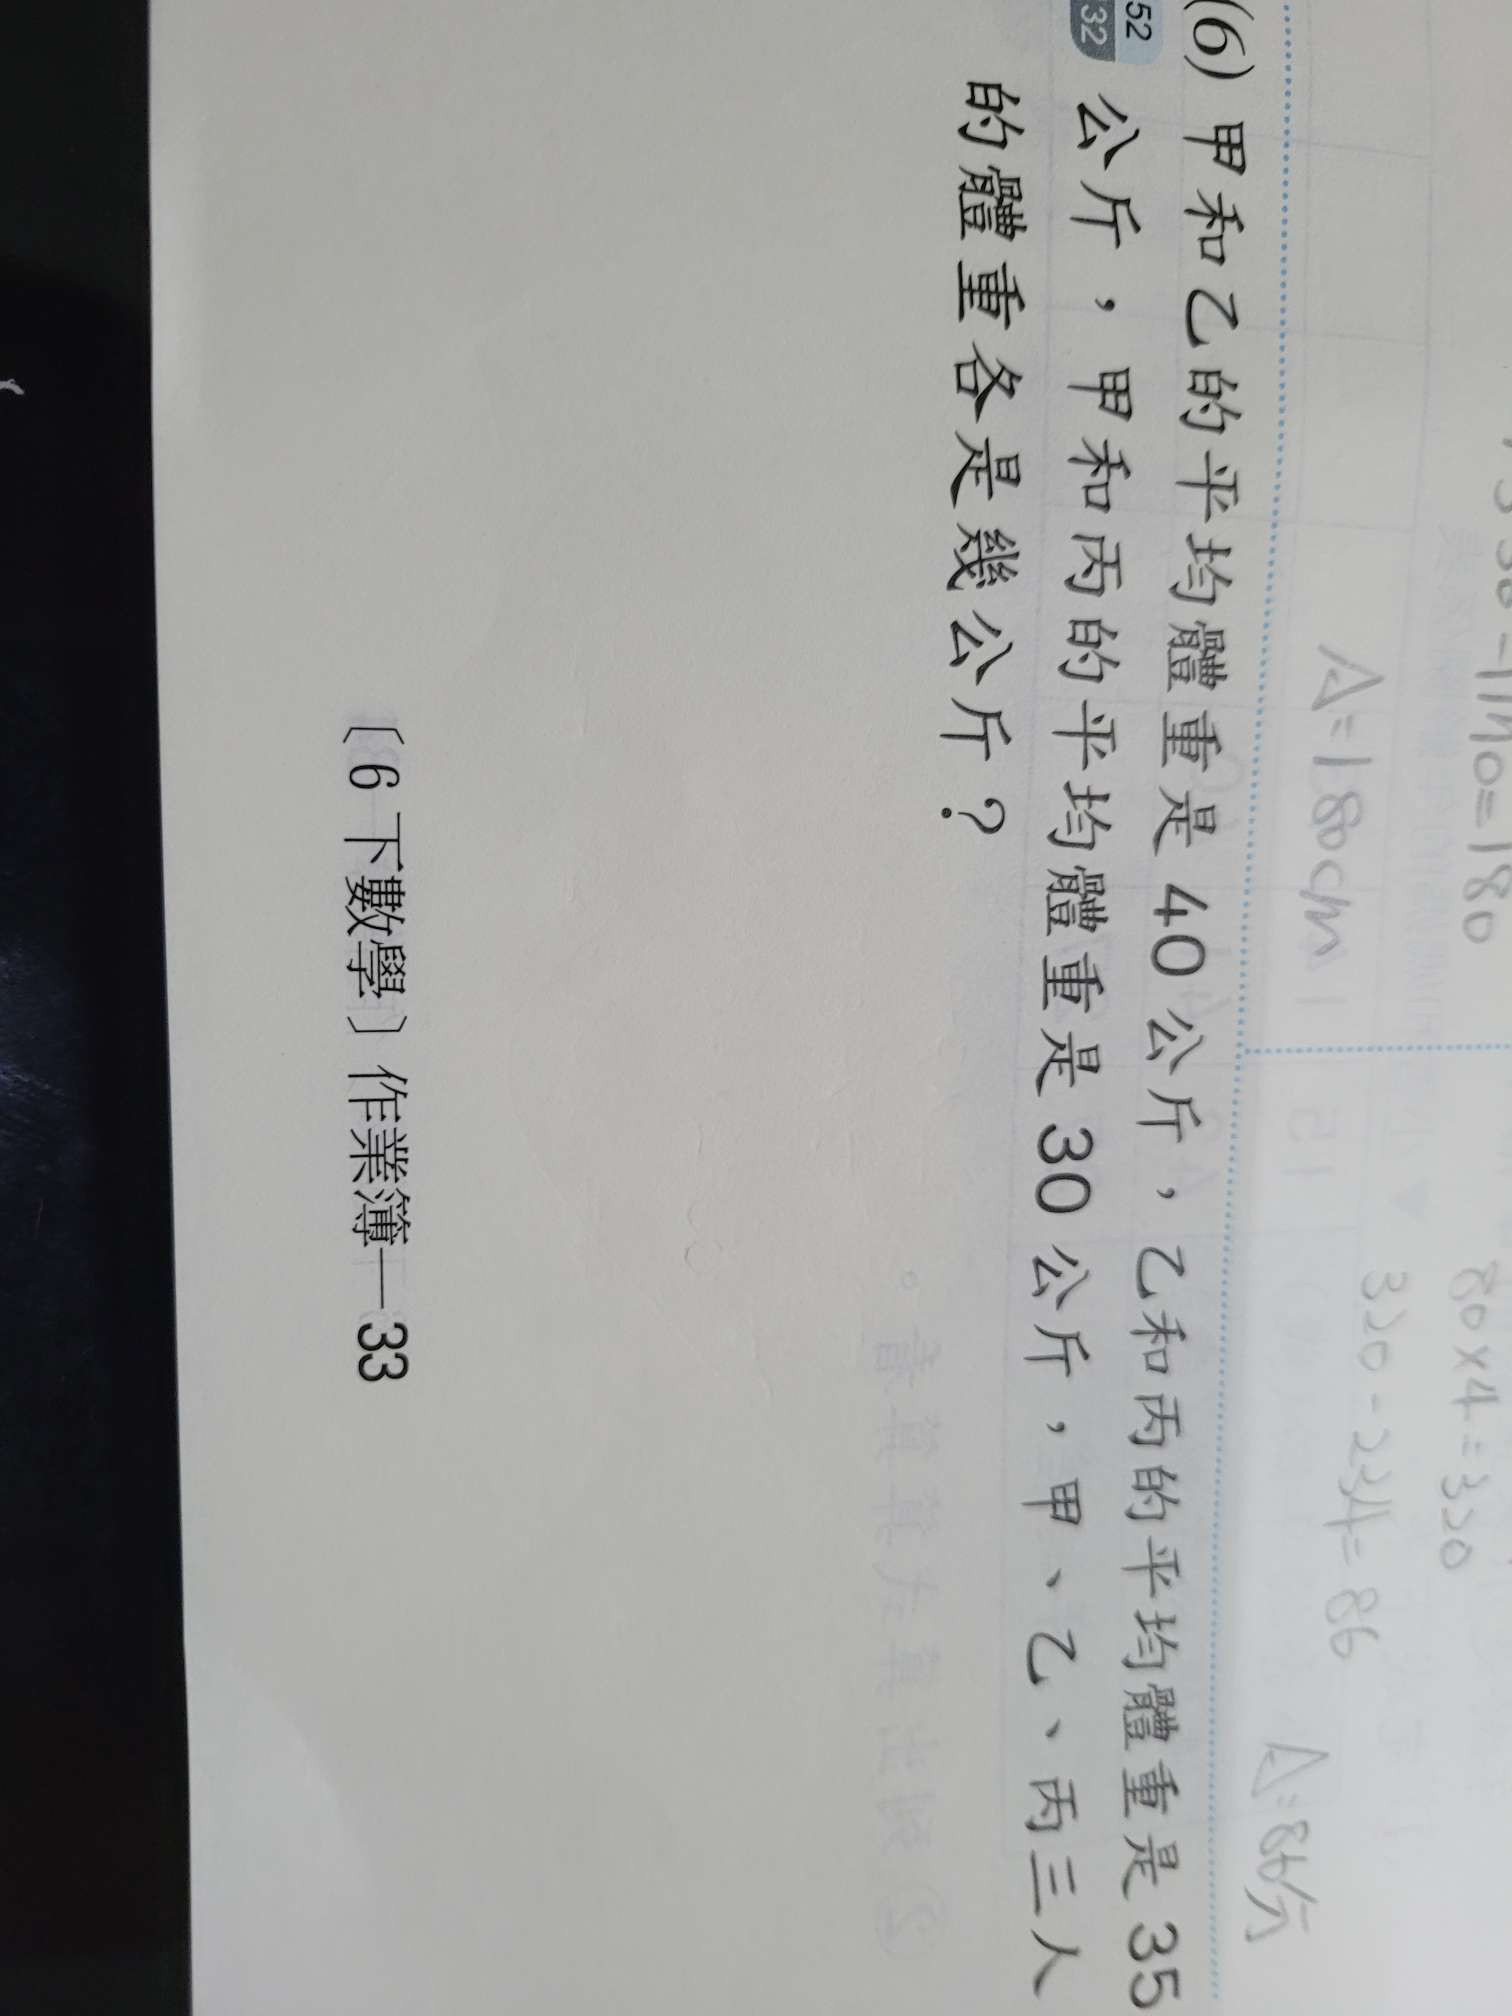 80×4=320
320-234=86
A=180cm
A=86分
(6) 甲和乙的平均體重是 40 公斤，乙和丙的平均體重是 35
52
32
公斤，甲和丙的平均體重是 30 公斤，甲、乙、丙三人
的體重各是幾公斤？
〔6 下數學〕作業簿—33